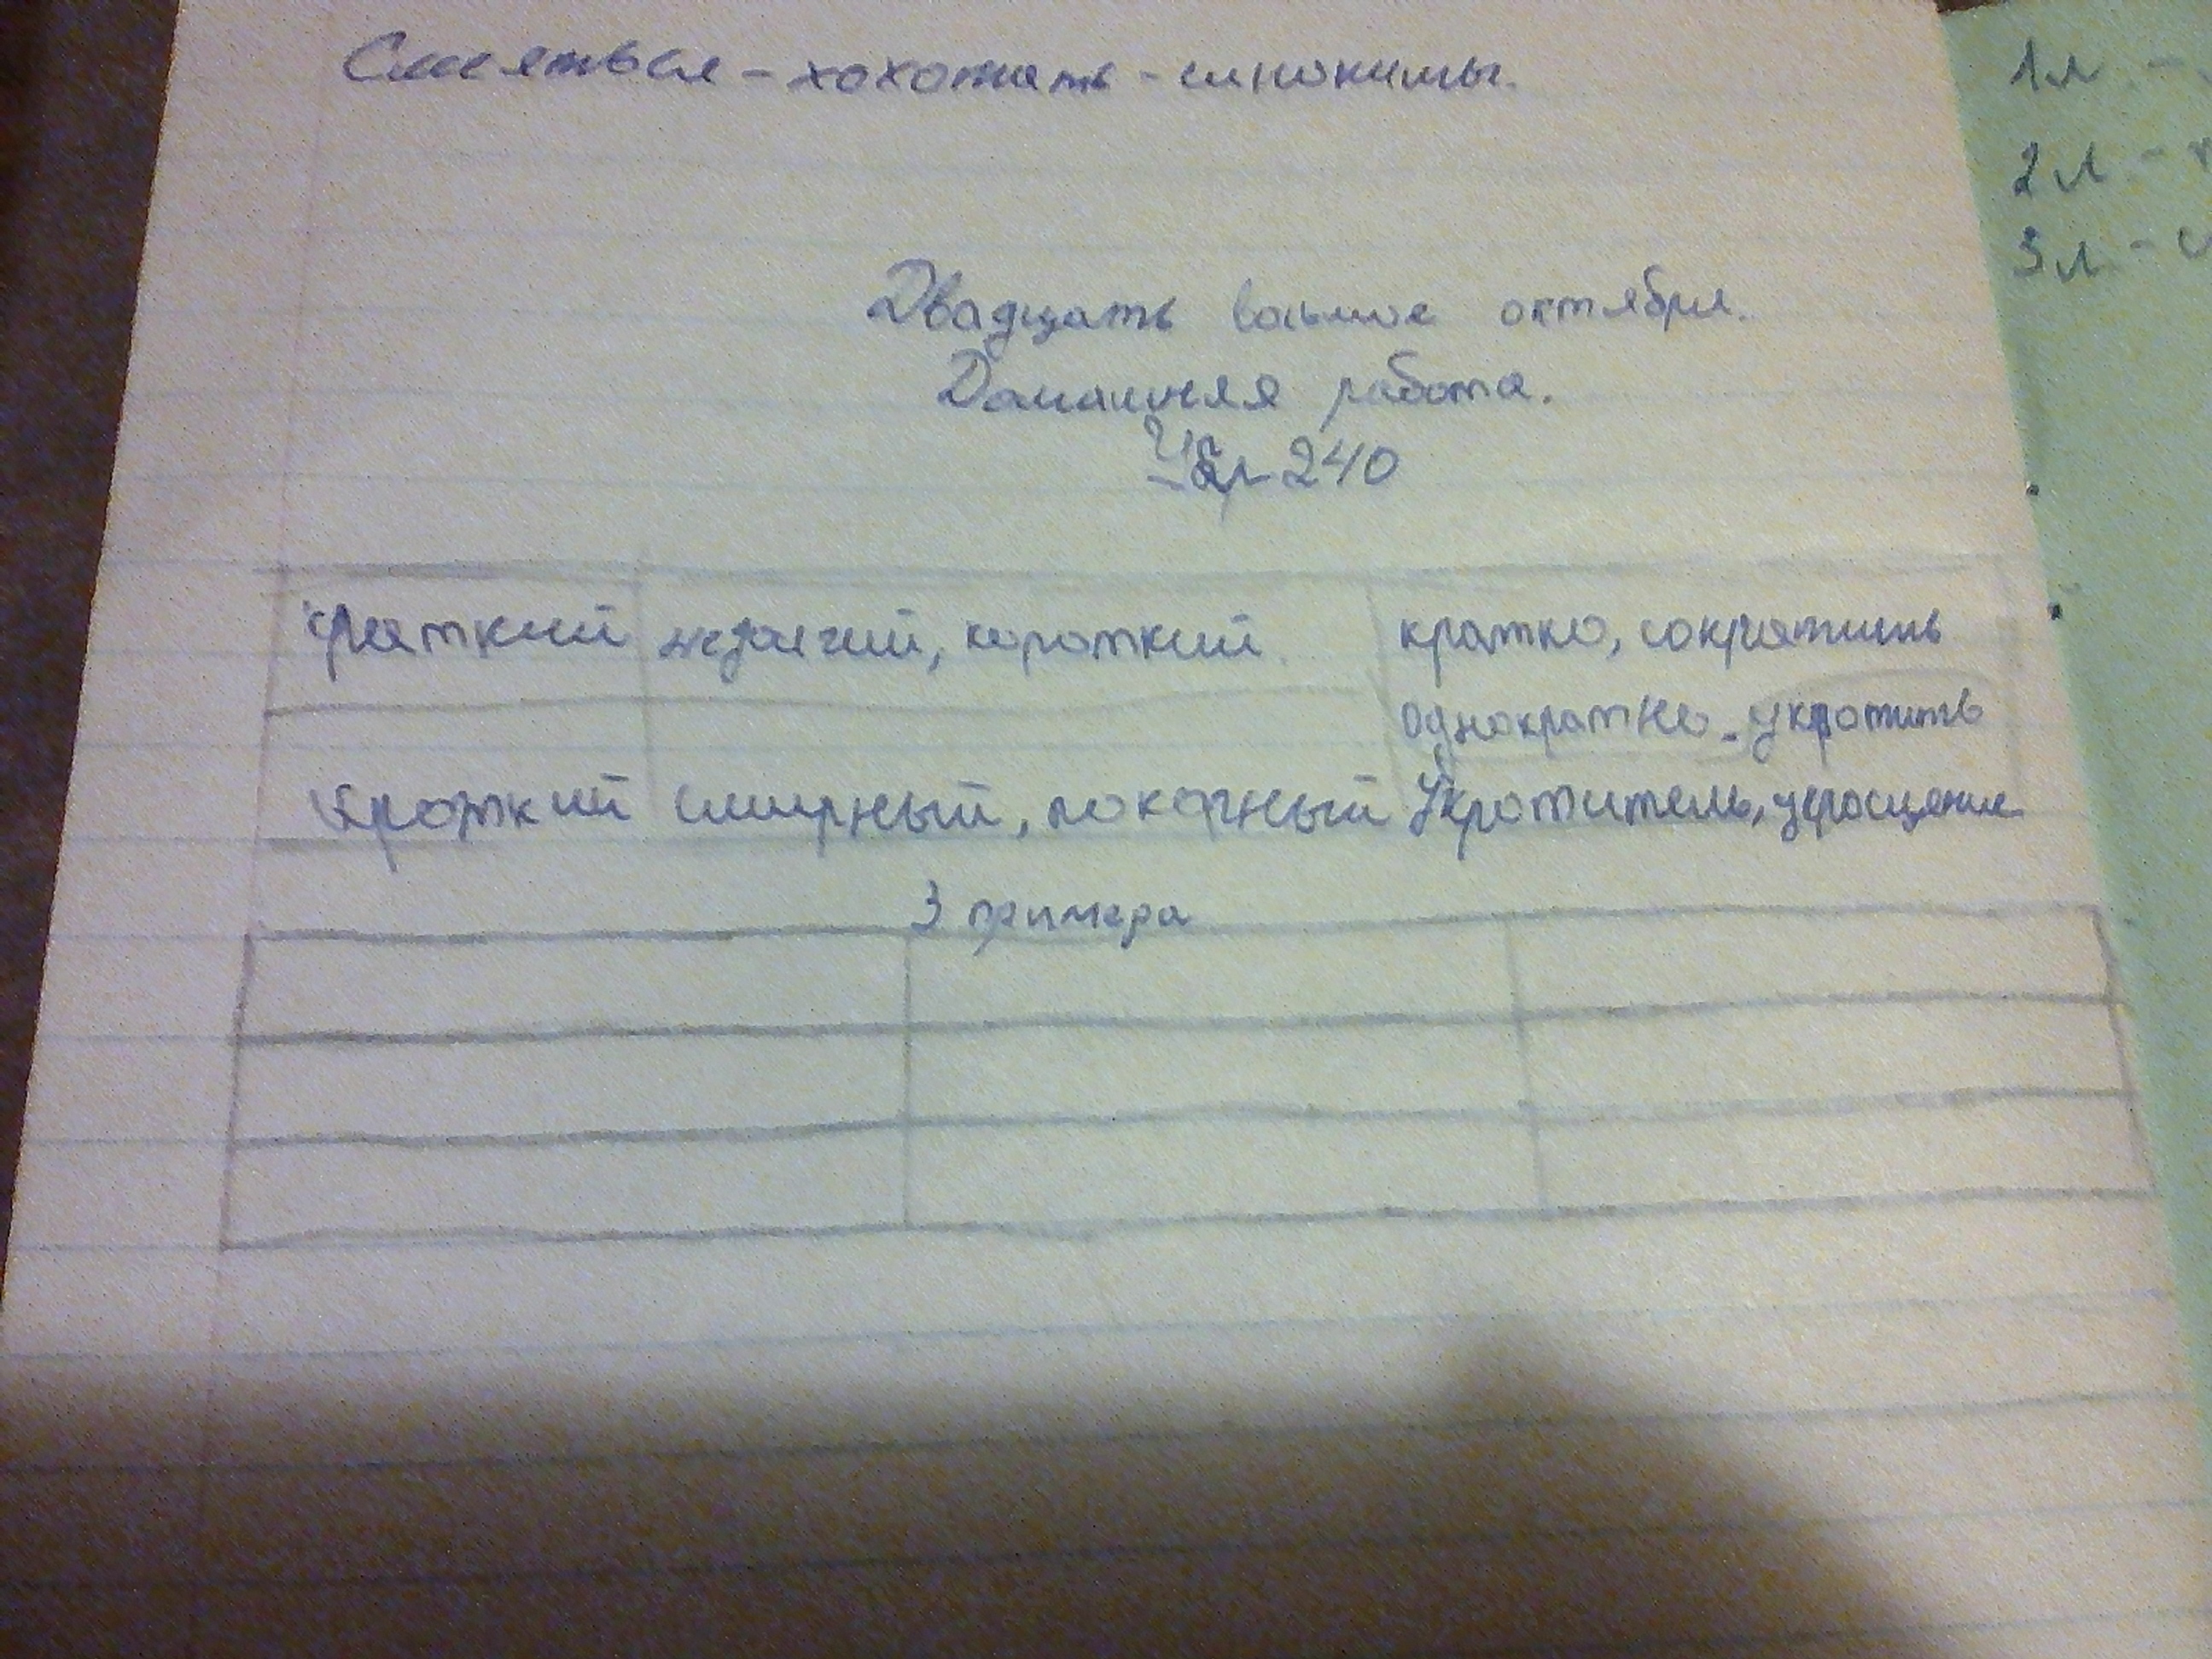 Смеяться - хохотать - синонимы.
1л. -
2л. -
3л. -
Двадцать восьмое октября.
Домашняя работа.
240
краткий недолгий, короткий кратко, сократить
однократно укротить
Кроткий смирный, покорный Укротитель, укрощение
3 примера